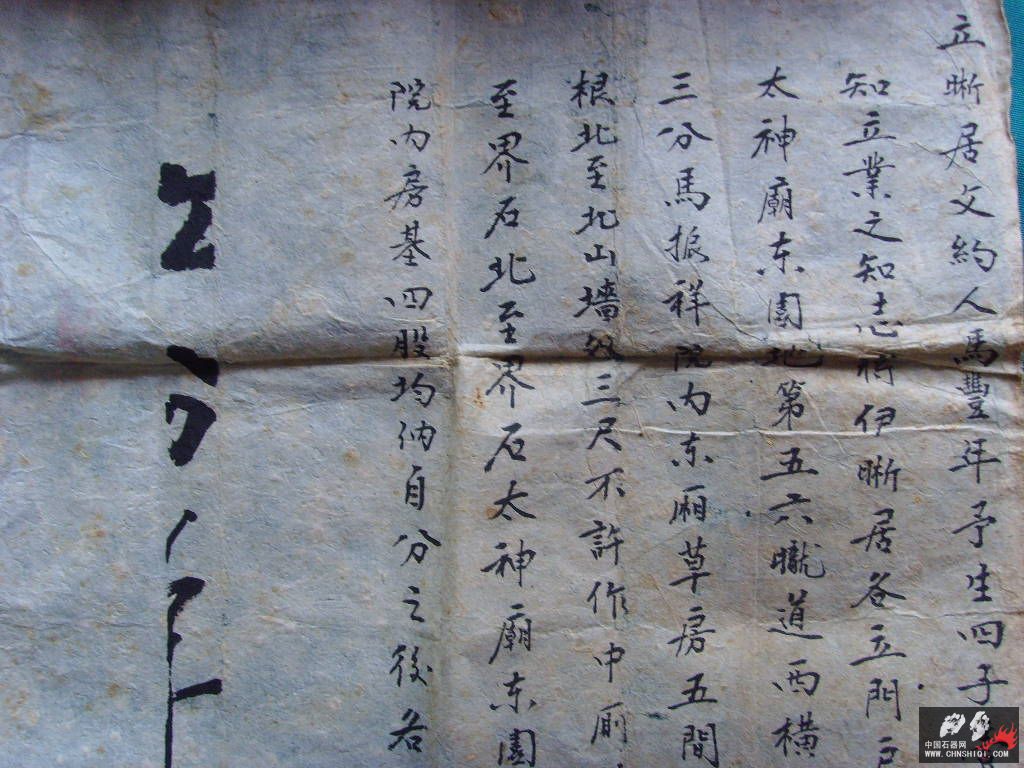 立晰居文約人馬豐年予生四子
知立業之知志將伊晰居各立門戶
太神廟东園地第五六朧道西橫
三分馬振祥院內东厢草房五間
根北至北山墻效三尺不許作中厠
至界石北至界石太神廟东園
院內房基四股均納自分之後各
中国石器网
WWW.CHNSHIQI.COM